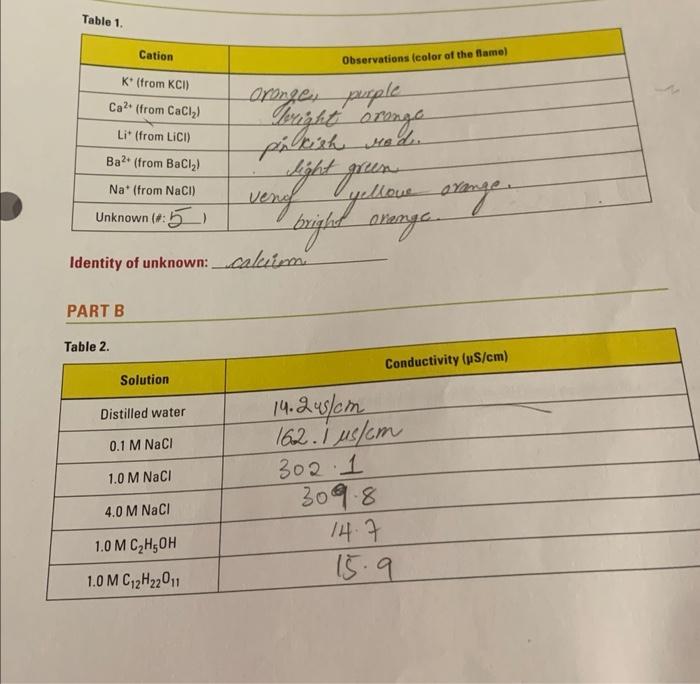 Table 1.
Cation Observations (color of the flame)
K⁺ (from KCl) orange, purple
Ca²⁺ (from CaCl₂) bright orange
Li⁺ (from LiCl) pinkish red.
Ba²⁺ (from BaCl₂) light green
Na⁺ (from NaCl) yellow orange.
Unknown (#: 5) bright orange.
Identity of unknown: calcium
PART B
Table 2.
Solution Conductivity (µS/cm)
Distilled water 14.2 us/cm
0.1 M NaCl 162.1 µs/cm
1.0 M NaCl 302.1
4.0 M NaCl 309.8
1.0 M C₂H₅OH 14.7
1.0 M C₁₂H₂₂O₁₁ 15.9